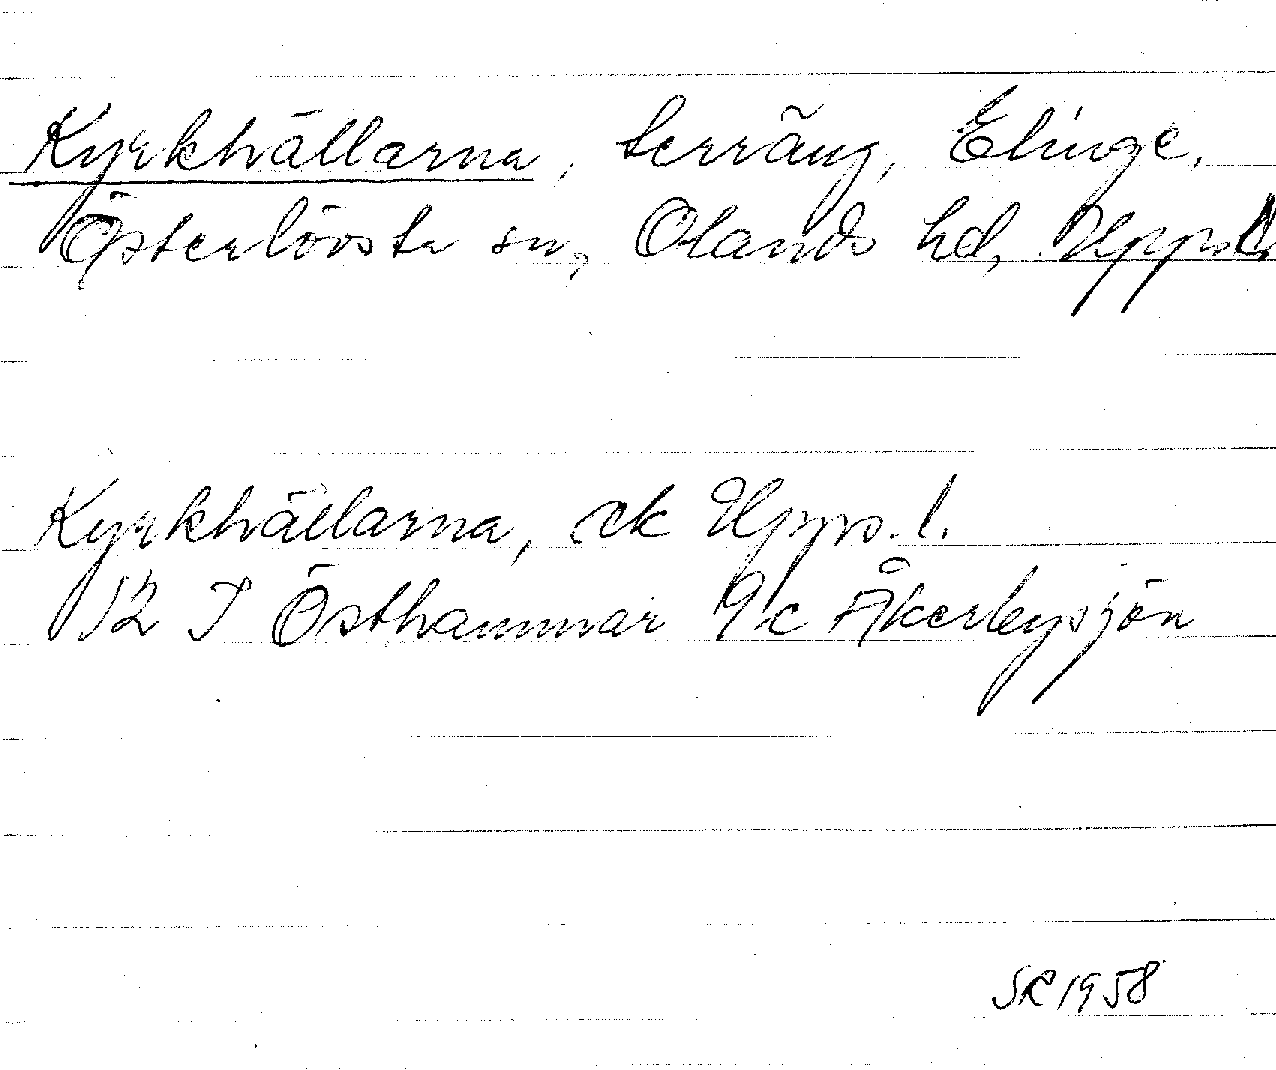 Kyrkhällarna, terräng, Elinge,
Österlövsta sn, Olands hd, Upps. l.
Kyrkhällarna, ek Upps. l.
12 I Östhammar 9 c Åkerbysjön
SR 1958